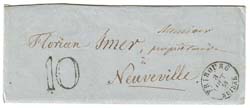 Monsieur
Florian Imer, propriétaire
à
Neuveville
10
FRIBOURG
SUISSE